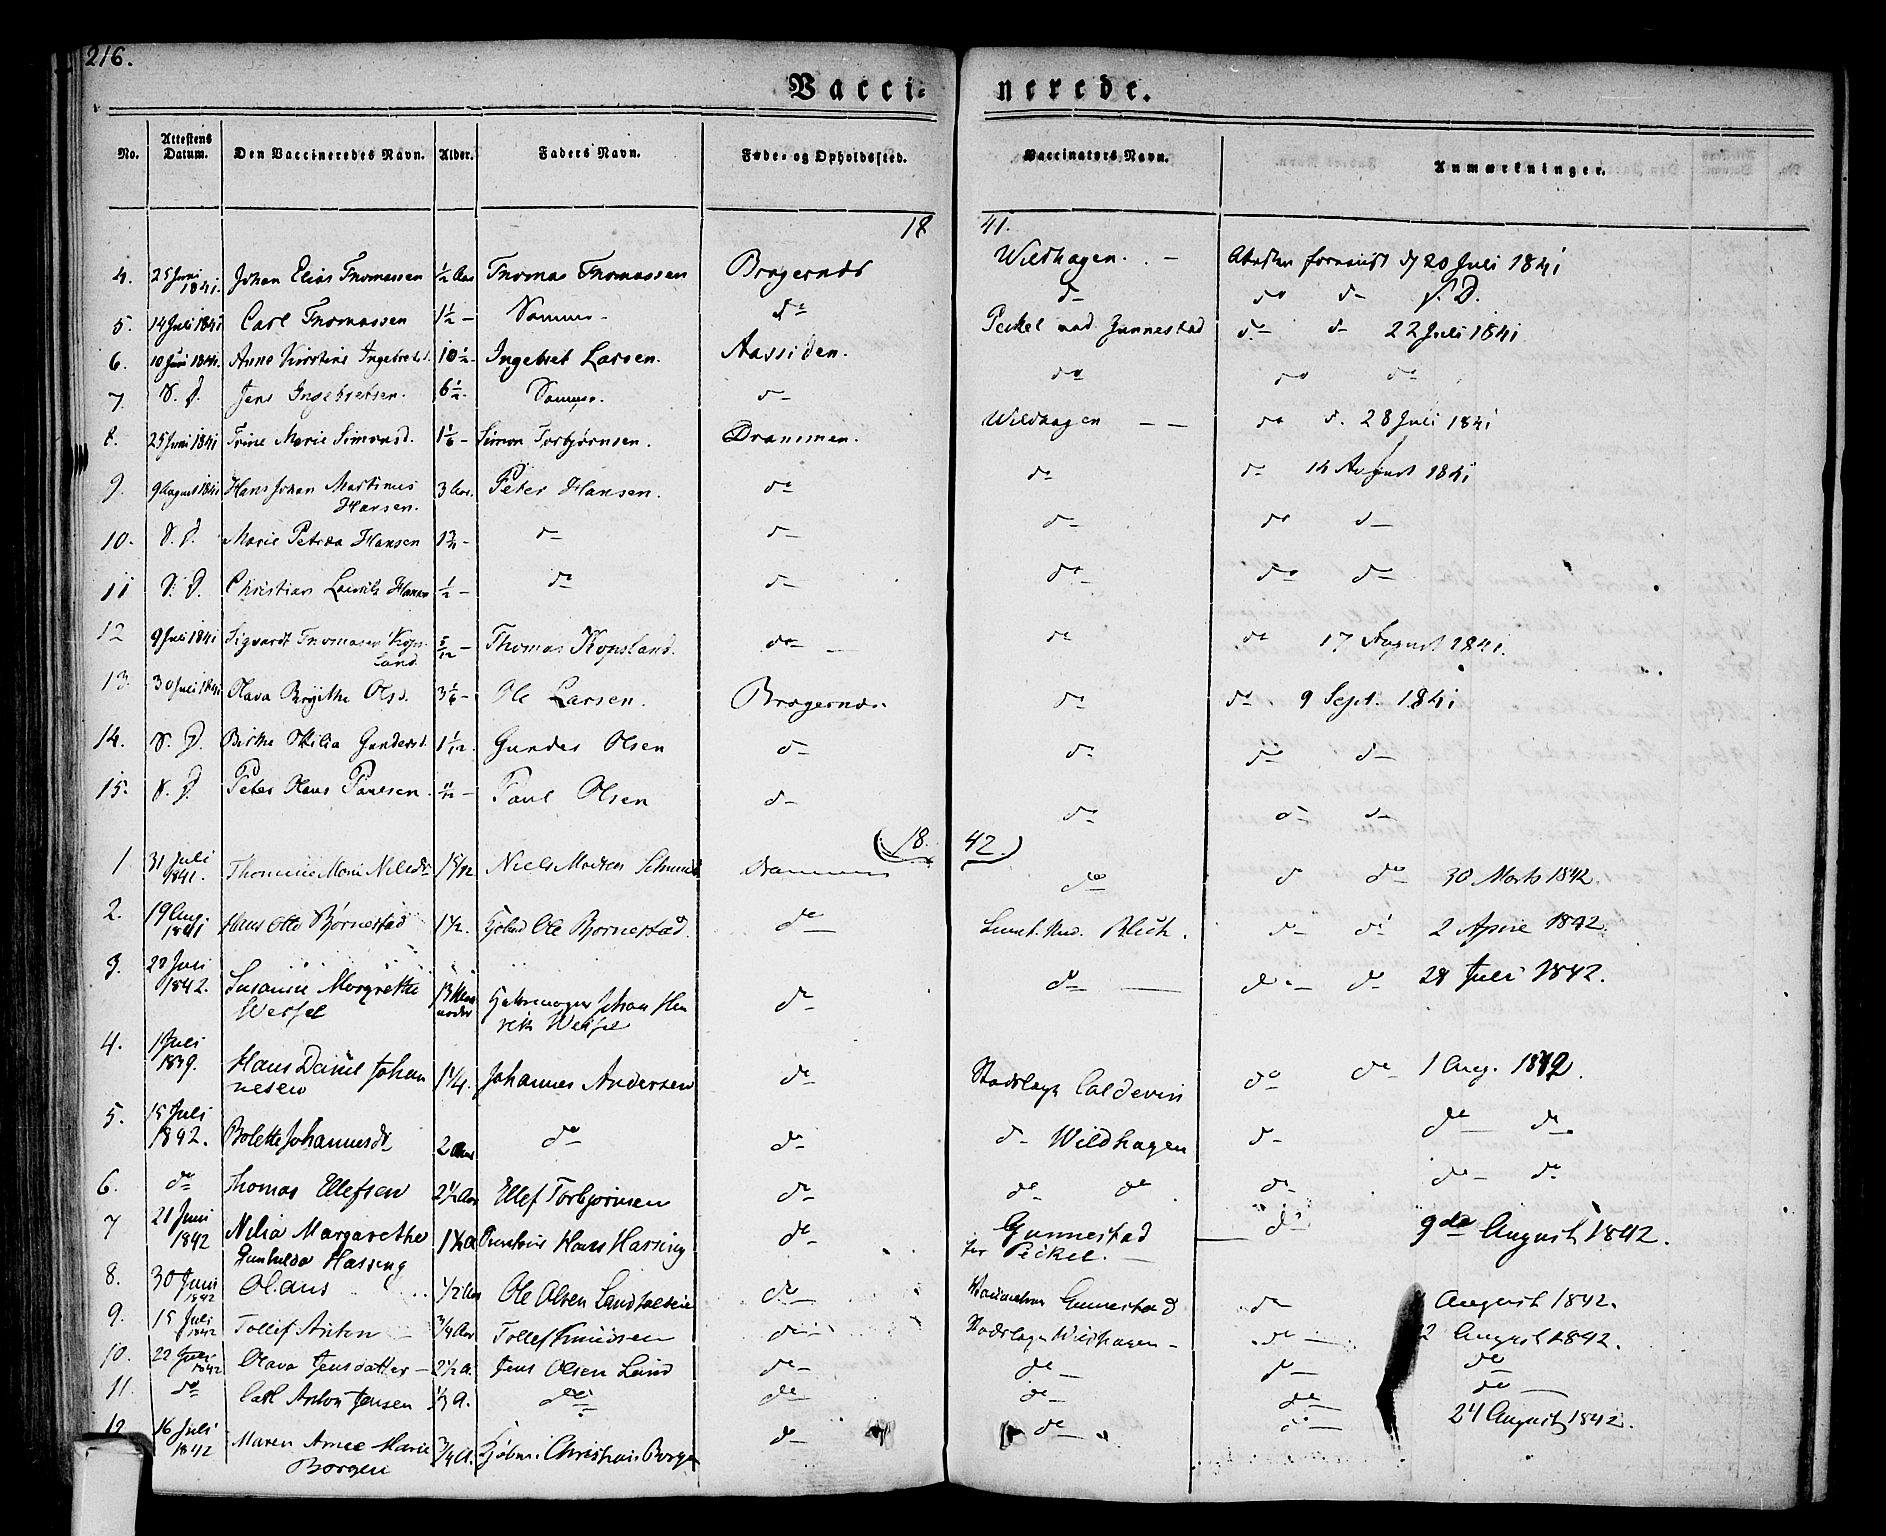 216.
Vacci= nerede.
No. Attestens Datum. Den Vaccineredes Navn. Alder. Faders Navn. Føde- og Opholdssted. Vaccinators Navn. Anmærkninger.
1841.
4. 25 Juni 1841. Johan Elias Thomassen ½ Aar Thomas Thomassen Bragernæs Wildhagen. – Attesten foreviist d 20 Juli 1841
5. 14 Juli 1841 Carl Thomassen 1½ – Samme. do do do do S. D.
6. 10 Juni 1841. Anne Kirstine Ingebretsd. 10½ Ingebret Larsen. Aassiden. Peckel ved Gunnestad do do 22 Juli 1841
7. S. D. Jens Ingebretsen. 6½ Samme. do do do do
8. 25 Juni 1841 Trine Marie Simonsd. 1⅙ – Simon Torbjørnsen. Drammen. Wildhagen – – do d. 28 Juli 1841
9. 9 August 1841 Hans Johan Martinus Hansen. 3 Aar. Peter Hansen. do do do 14 August 1841
10. S. D. Marie Petrea Hansen do do do do do
11 S. D. Christian Laurits Hansen ½ – do do do do do
12 9 Juli 1841 Sigvardt Thomasen Kopsland 5/12 – Thomas Kopsland. do – do do 17 August 1841.
13. 30 Juli 1841 Olava Birgithe Olsd. 3⅙ – Ole Larsen. Bragernæs do do 9 Sept. 1841
14. S. D. Birthe Otilia Gundersd. 1 1/12. Gunder Olsen do do do do
15. S. D. Peter Hans Paulsen. 11/12 – Paul Olsen do do do do
(1842.)
1 31 Juli 1841. Thomine Marie Nilsdr Niels Morten Schmidt Drammen do do do 30 Marts 1842.
2. 19 Aug. 1841 Hans Otto Bjørnestad 1½. Kjøbmd Ole Bjørnestad. do Blich. do do 2 April 1842.
3. 20 Juli 1842. Susanne Margrethe Wessel 13 Maaneder Johan Henrik Wessel do do do do 28 Juli 1842.
4. 1 Juli 1839. Hans Daniel Johannesen 1¼. Johannes Andersen do Stadslæge Caldevin do do 1 Aug. 1842.
5. 15 Juli 1842. Bolette Johannesdr 2 Aar do do do Wildhagen do do do
6. do Thomas Ellefsen 2½ Aar Ellef Torbjørnsen do do do do do do
7 21 Juni 1842 Nilia Margarethe Gunhilda Hassing Hans Hassing do Gunnestad for Peckel. – do 9de August 1842.
8. 30 Juni 1842 Olaus ½ Aar Ole Olsen do Gunnestad do August 1842.
9. 15 Juli 1842 Tollef Anton – ¾ Aar Tollef Knudsen do Stadslæge Wildhagen – do 2 August 1842.
10. 22 Juli 1842 Olava Jensdatter – 2½ A. Jens Olsen Lund do do do do
11. do Carl Anton Jensen ½ A. do do do do do
12 16 Juli 1842 Maren Anne Marie Borgen ¾ A. Kjøbm. Christian Borgen do do do 24 August 1842.